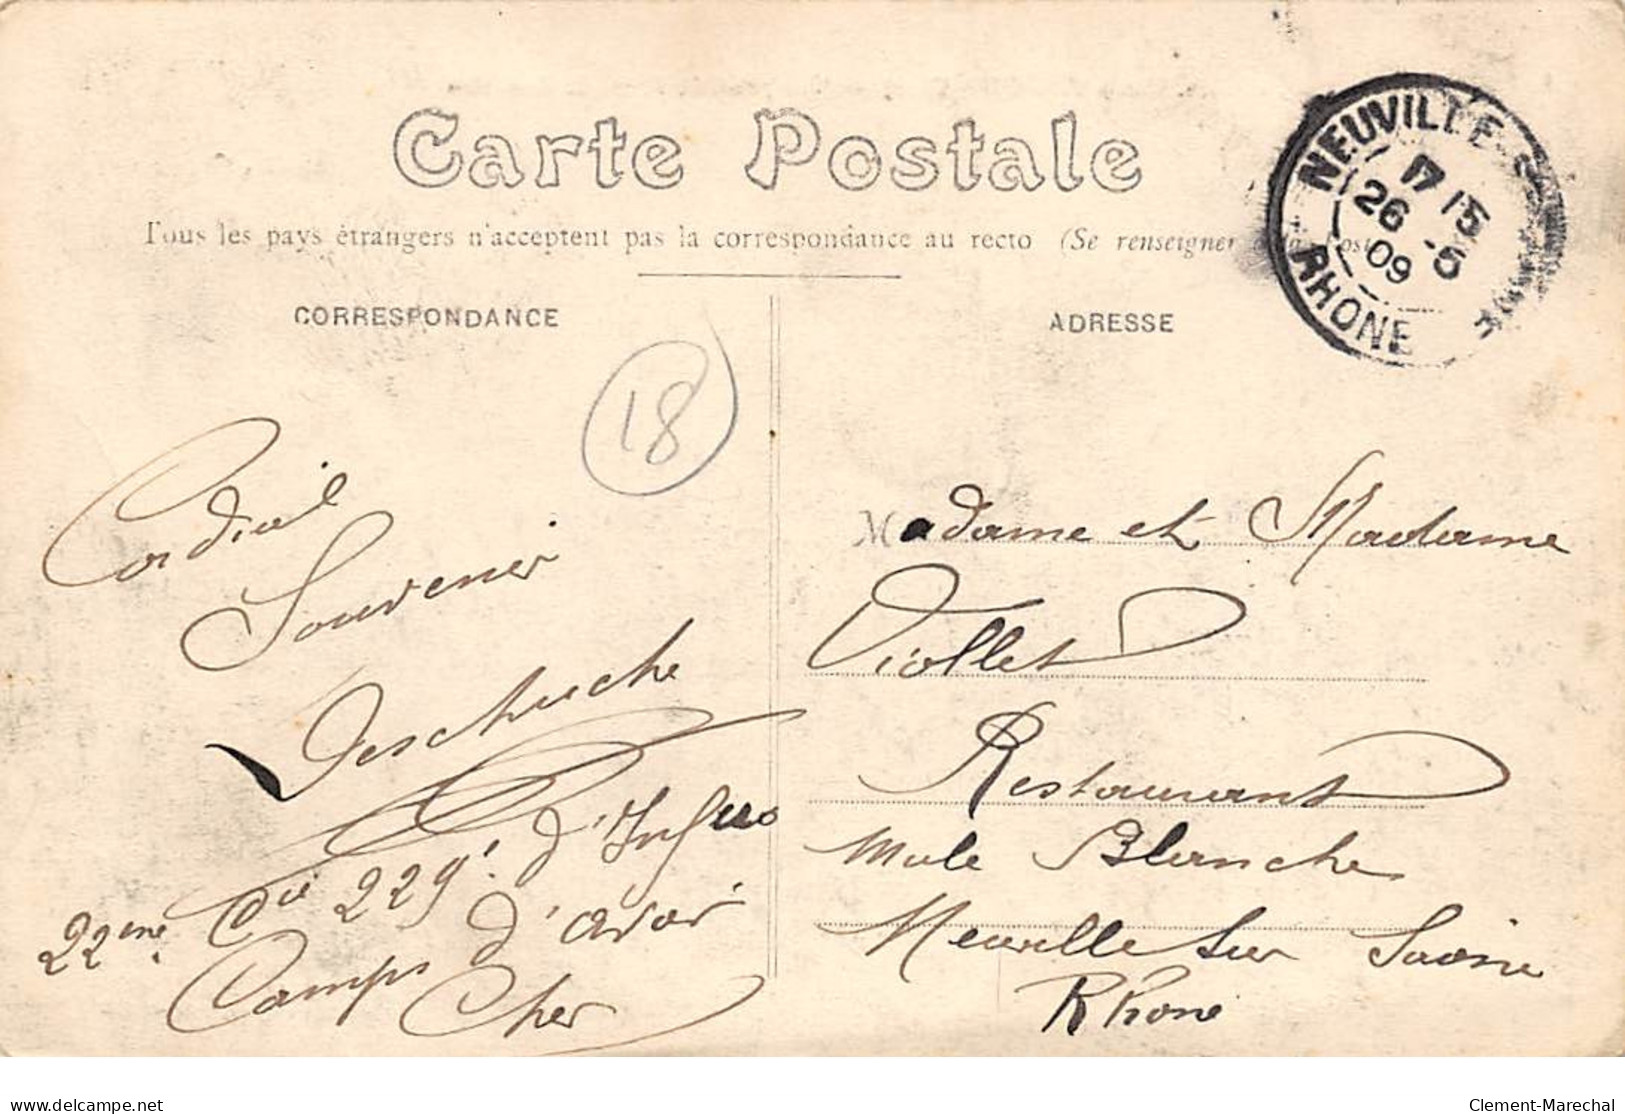 Carte Postale
Tous les pays étrangers n'acceptent pas la correspondance au recto (Se renseigner à la Poste
NEUVILLE-S
17 15
26 -5
09
RHONE
CORRESPONDANCE
ADRESSE
18
Cordial
Souvenir
Deschuche
22ème Cie 229e. d'Infrie
Camps d'avor
Cher
Madame et Madame
Viollet
Restaurant
Mule Blanche
Neuville sur Saone
Rhone
delcampe.net
Clement-Marechal